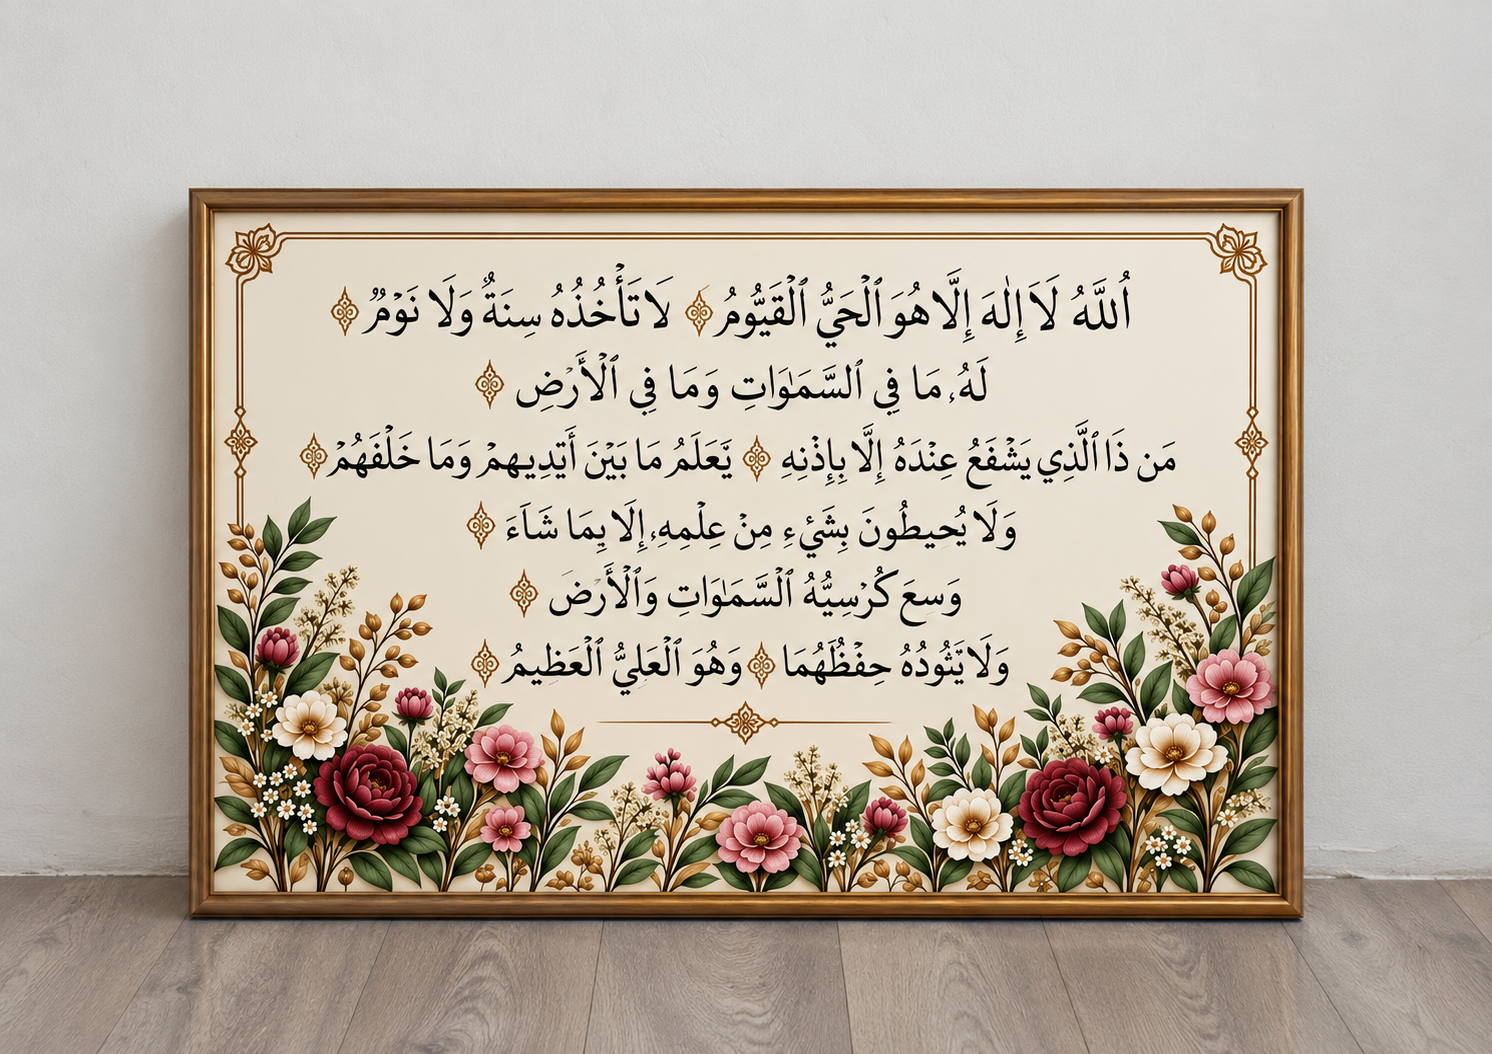 ٱللَّهُ لَآ إِلَٰهَ إِلَّا هُوَ ٱلْحَيُّ ٱلْقَيُّومُ لَا تَأْخُذُهُ سِنَةٌ وَلَا نَوْمٌ
لَهُۥ مَا فِي ٱلسَّمَٰوَاتِ وَمَا فِي ٱلْأَرْضِ
مَن ذَا ٱلَّذِي يَشْفَعُ عِنْدَهُ إِلَّا بِإِذْنِهِ يَعْلَمُ مَا بَيْنَ أَيْدِيهِمْ وَمَا خَلْفَهُمْ
وَلَا يُحِيطُونَ بِشَيْءٍ مِنْ عِلْمِهِۦ إِلَّا بِمَا شَآءَ
وَسِعَ كُرْسِيُّهُ ٱلسَّمَٰوَاتِ وَٱلْأَرْضَ
وَلَا حِفْظُهُمَا وَهُوَ ٱلْعَلِيُّ ٱلْعَظِيمُ